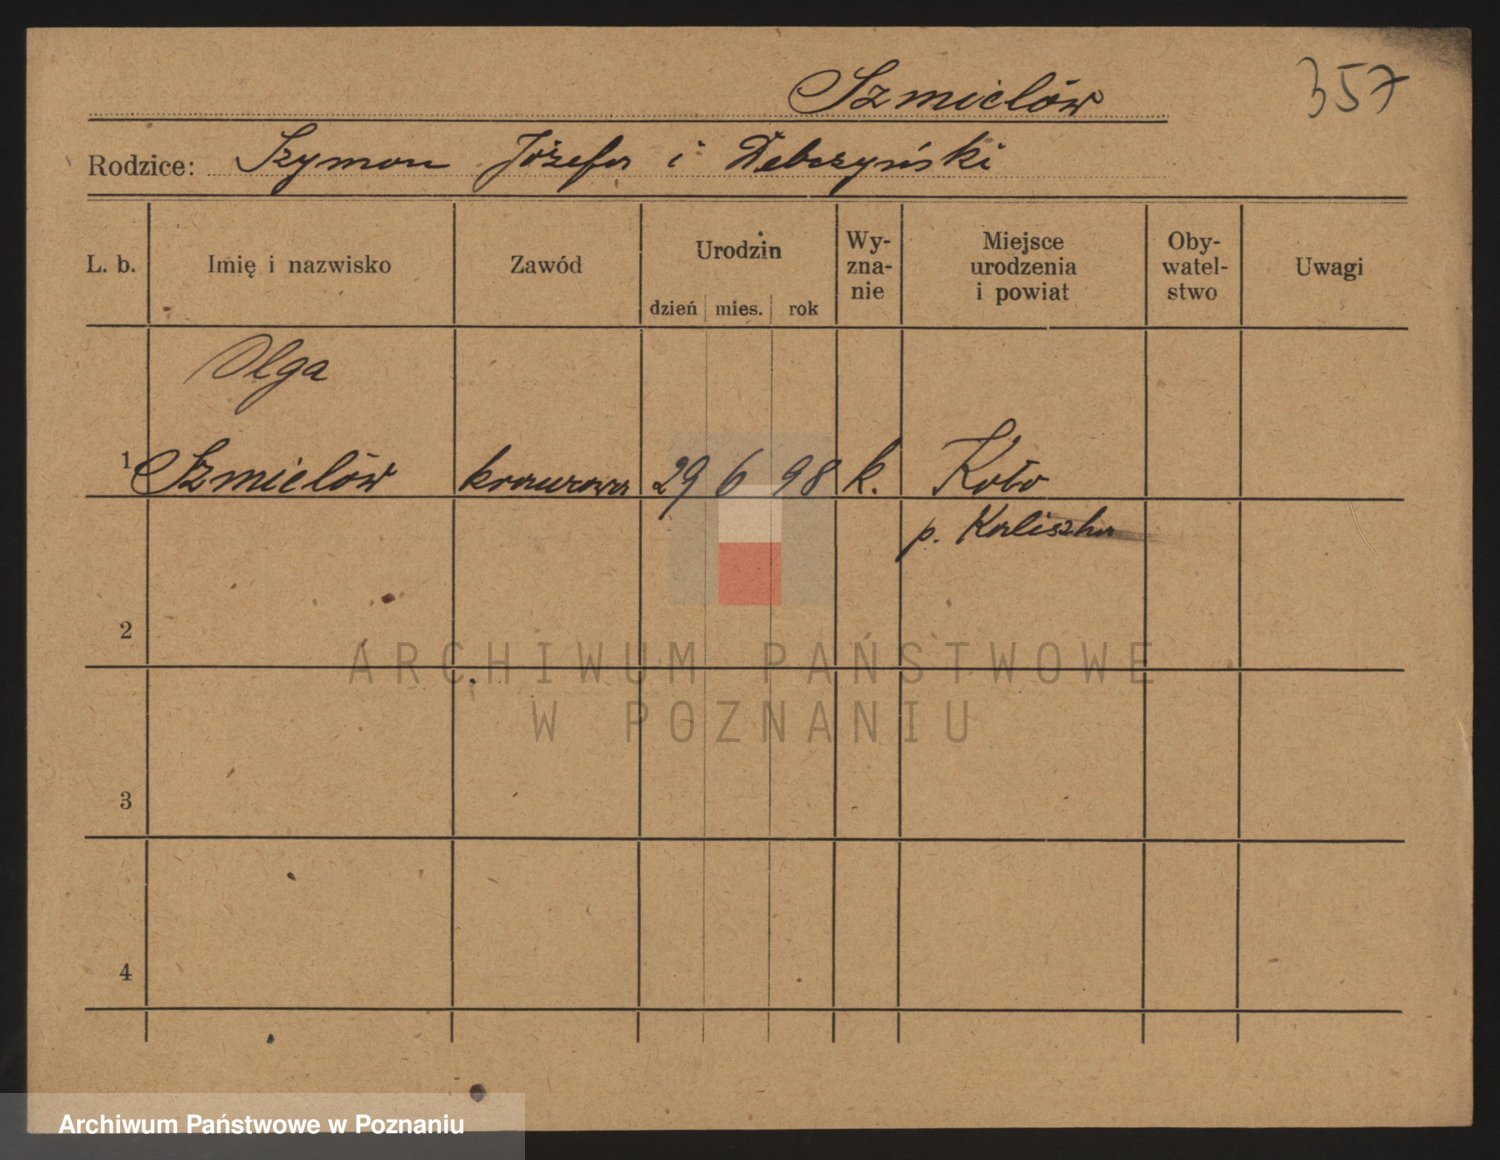 Szmielów 357
Rodzice: Szymon Józefa i Debczyński
L. b. Imię i nazwisko Zawód Urodzin dzień mies. rok Wy-zna-nie Miejsce urodzenia i powiat Oby-watel-stwo Uwagi
Olga
1 Szmielów krawcowa 29 6 98 k. Koło
p. Kaliszka
2
3
4
ARCHIWUM PAŃSTWOWE
W POZNANIU
Archiwum Państwowe w Poznaniu